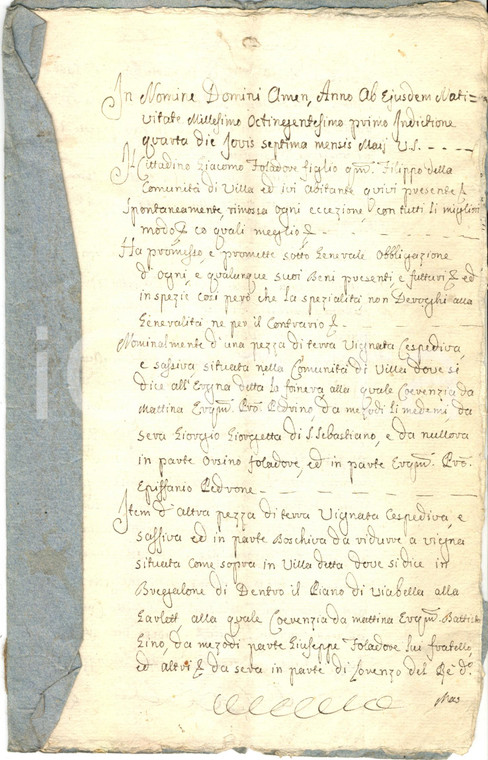 In Nomine Domini Amen, Anno Ab Ejusdem Nati=
vitate Millesimo Octingentesimo primo Indictione
quarta die Jovis septima mensis Maij V.S. - - - -
Il Cittadino Giacomo Foladore figlio qm. Filippo della
Comunità di Villa ed ivi abitante quivi presente &
Spontaneamente, rimossa ogni eccezione & con tutti li migliori
modo & co quali meglio & -
Ha promesso, e promette sotto Generale Obbligazione
d'ogni, e qualunque suoi Beni presenti, e futturi & ed
in spezie così però che la spezialità non Deroghi alla
Generalità ne per il Contrario & -
Nominalmente d'una pezza di terra Vignata Cespediva,
e sassiva situata nella Comunità di Villa dove si
dice all' detta lo alla quale Coerenzia da
mattina Er. qm. Pro. Pedrino, da mezodi li medemi, da
sera Giorgio Giorgetta di S. Sebastiano, e da null'ora
in parte Orsino Foladore, ed in parte Er. qm. Pro.
Epiffanio Pedrone - - - - -
Item d'altra pezza di terra Vignata Cespediva, e
sassiva ed in parte Boschiva da ridurre a vigna
situata come sopra in Villa detta dove si dice in
di Dentro il Piano di Viabella alla
alla quale Coerenzia da mattina Er. qm. Battista
Gino, da mezodi parte Giuseppe Foladore lui fratello,
ed altri & da sera in parte di Lorenzo del Re do.